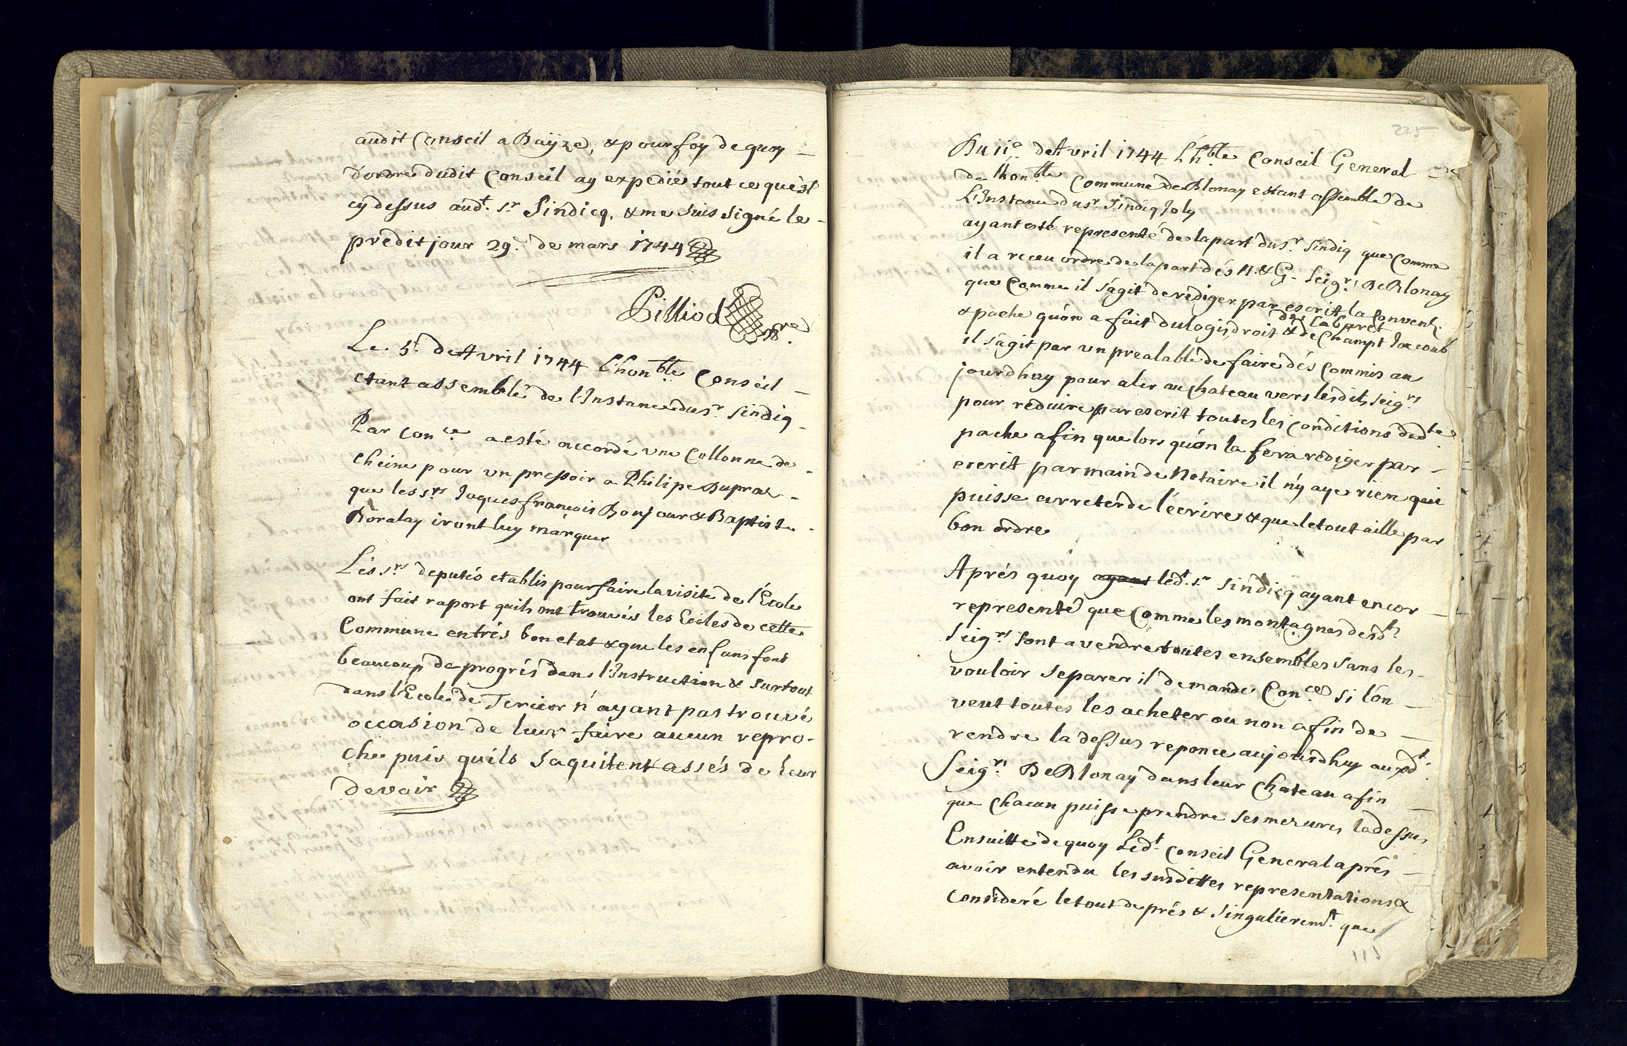 audit Conseil a Duÿze, & pour foy de quoy
d'ordre dudit Conseil ay expedié tout ce qu'est
cy dessus aud.t s.r Sindicq, & me suis signé le
predit jour 29.e de mars 1744
Pilliod
Le 5.e de Avril 1744 L'hon.ble Conseil
etant assemblé de l'Instance du s.r Sindiq
Par Con.ce a esté accordé vne Collonne de
cheine pour vn pressoir a Philipe Dupraz
que les s.rs Jaques françois Bonjour & Baptiste
Boralay iront luy marquer
Les s.rs deputés etablis pour faire la visite de l'Ecole
ont fait raport quils ont trouvés les Ecoles de cette
Commune en trés bon etat & que les enfans font
beaucoup de progrés dans l'Instruction & surtout
dans l'Ecole de Tercier n'ayant pas trouvé
occasion de leur faire aucun repro-
che puis quils saquitent assés de leur
devoir
225
Du 11.e de Avril 1744 L'h.ble Conseil General
de lhon.ble Commune de Blonay estant assemblé de
L'Instance du s.r Sindiq Joly
ayant esté representé de la part du s.r Sindiq que Comme
il a receu ordre de la part dés N. & G. Seig.rs De Blonay
que Comme il s'agit de rediger par escrit la Convent.
& pache qu'on a fait du logis, droit de Cabaret & de Champt Jacoud
il s'agit par vn prealable de faire dés Commis au
jourdhuy pour aler au Chateau vers lesdits Seig.rs
pour reduire par escrit toutes les conditions de d.te
pache afin que lors qu'on la fera rediger par
escrit par main de Notaire il n'y aye rien qui
puisse arreter de l'écrire & que le tout aille par
bon ordre
Aprés quoy ayant led.t s.r Sindicq ayant encor
representé que Comme les montagnes desd.ts
Seig.rs sont a vendre toutes ensembles sans les
vouloir separer il demande Con.ce si l'on
veut toutes les acheter ou non afin de
rendre la dessus reponce aujourdhuy aux d.ts
Seig.rs De Blonay dans leur Chateau afin
que Chacun puisse prendre ses mezures la dessus,
Ensuitte de quoy Led.t Conseil General aprés
avoir entendu les susdittes representations &
Consideré le tout de prés & singulierem.t que
111